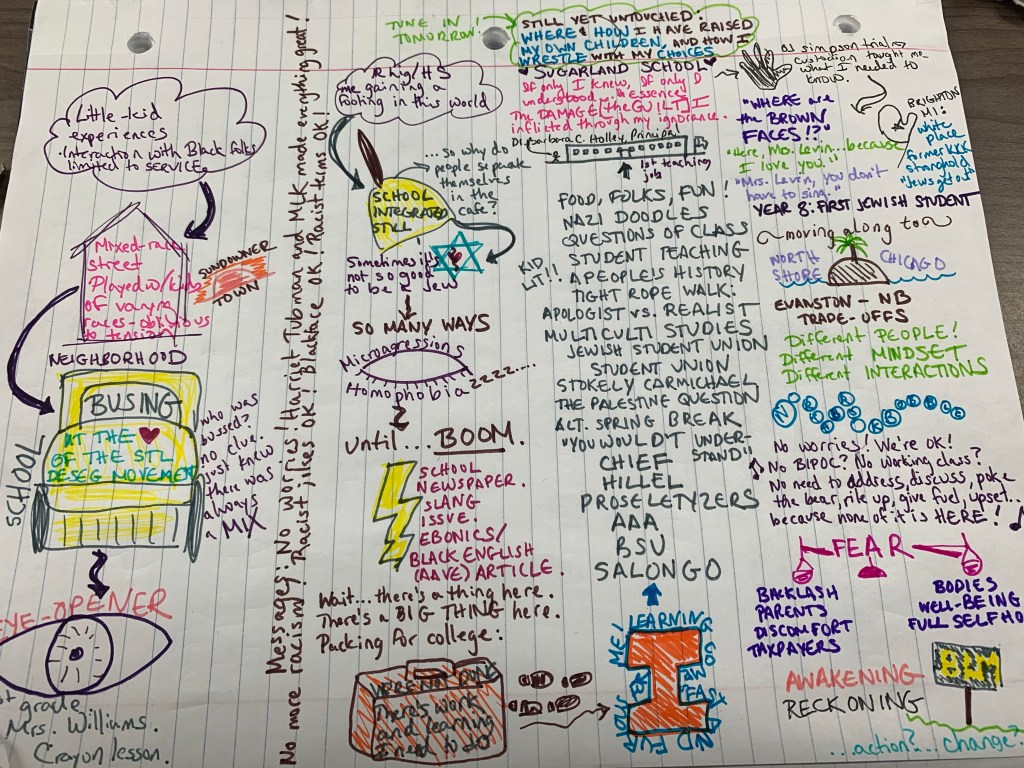 TUNE IN
TOMORROW!
STILL YET UNTOUCHED:
WHERE & HOW I HAVE RAISED
MY OWN CHILDREN, AND HOW I
WRESTLE WITH MY CHOICES
Little-kid
experiences
Interaction with Black folks
limited to SERVICE.
Mixed-race
street
Played w/ kids
of varying
races - oblivious
to tension
SUNDOWNER
TOWN
NEIGHBORHOOD
SCHOOL
BUSING
AT THE
OF THE STL
DESEG MOVEMENT
who was
bussed?
no clue.
Just knew
there was
always
a MIX
EYE-OPENER
1st grade
Mrs. Williams.
Crayon lesson.
Messages: No worries! Harriet Tubman and MLK made everything great!
No more racism! Racist jokes OK! Blackface OK! Racist terms OK!
me gaining a
footing in this world
...so why do
people separate
themselves
in the
cafe?
SCHOOL
INTEGRATED
STILL
Sometimes it's
not so good
to be a Jew
SO MANY WAYS
Microagressions
Homophobia
zzzz....
Until... BOOM.
SCHOOL
NEWSPAPER.
SLANG
ISSUE.
EBONICS/
BLACK ENGLISH
(AAVE) ARTICLE.
Wait...there's a thing here.
There's a BIG THING here.
Packing for college:
WE'RE NOT DONE
There's work
and learning
I need to do
SUGARLAND SCHOOL
If only I knew, If only I
understood
The DAMAGE [the GUILT] I
inflicted through my ignorance.
Dr. Barbara C. Holley, Principal
1st teaching
job
KID
LIT!!
FOOD, FOLKS, FUN!
NAZI DOODLES
QUESTIONS OF CLASS
STUDENT TEACHING
A PEOPLE'S HISTORY
TIGHT ROPE WALK:
APOLOGIST vs. REALIST
MULTICULTI STUDIES
JEWISH STUDENT UNION
STUDENT UNION
STOKELY CARMICHAEL
THE PALESTINE QUESTION
ALT. SPRING BREAK
"YOU WOULD'T UNDER-
STAND"
CHIEF
HILLEL
PROSELETYZERS
AAA
BSU
SALONGO
I
LEARNING
OJ simpson trial
custodian taught me
what I needed to
know.
"WHERE are
the BROWN
FACES!?"
"Here, Ms. Levin...because
I love you."
"Mrs. Levin, you don't
have to sing."
BRIGHTON
HI!
white
place
former KKK
stronghold
"Jews get out"
YEAR 8: FIRST JEWISH STUDENT
moving along to
NORTH
SHORE
CHICAGO
EVANSTON - NB
TRADE-OFFS
Different PEOPLE!
Different MINDSET
Different INTERACTIONS
No worries! We're OK!
No BIPOC? No working class?
No need to address, discuss, poke
the bear, rile up, give fuel, upset...
because none of it is HERE!
FEAR
BACKLASH
PARENTS
DISCOMFORT
TAXPAYERS
BODIES
WELL-BEING
FULL SELFHO
AWAKENING
RECKONING
...action?...change.